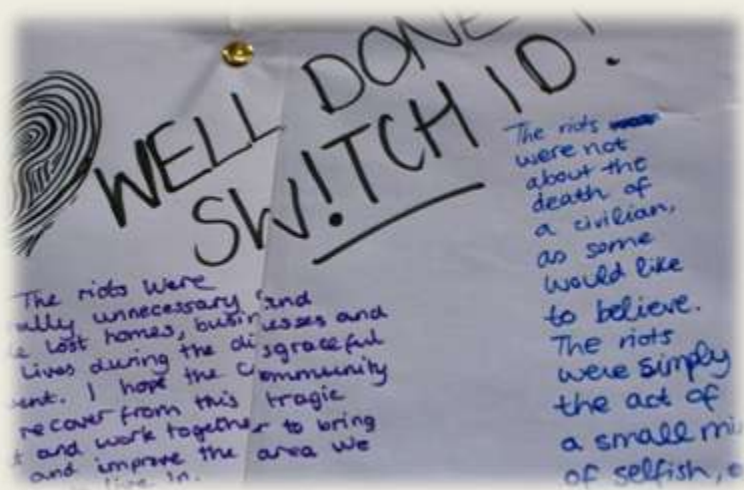 WELL DONE
SW!TCH ID!
The riots were
unnecessary and
lost homes, businesses and
Lives during the disgraceful
I hope the Community
recover from this tragic
and work together to bring
and improve the area we
live in.
The riots
were not
about the
death of
a civilian,
as some
would like
to believe.
The riots
were simply
the act of
a small
of selfish,